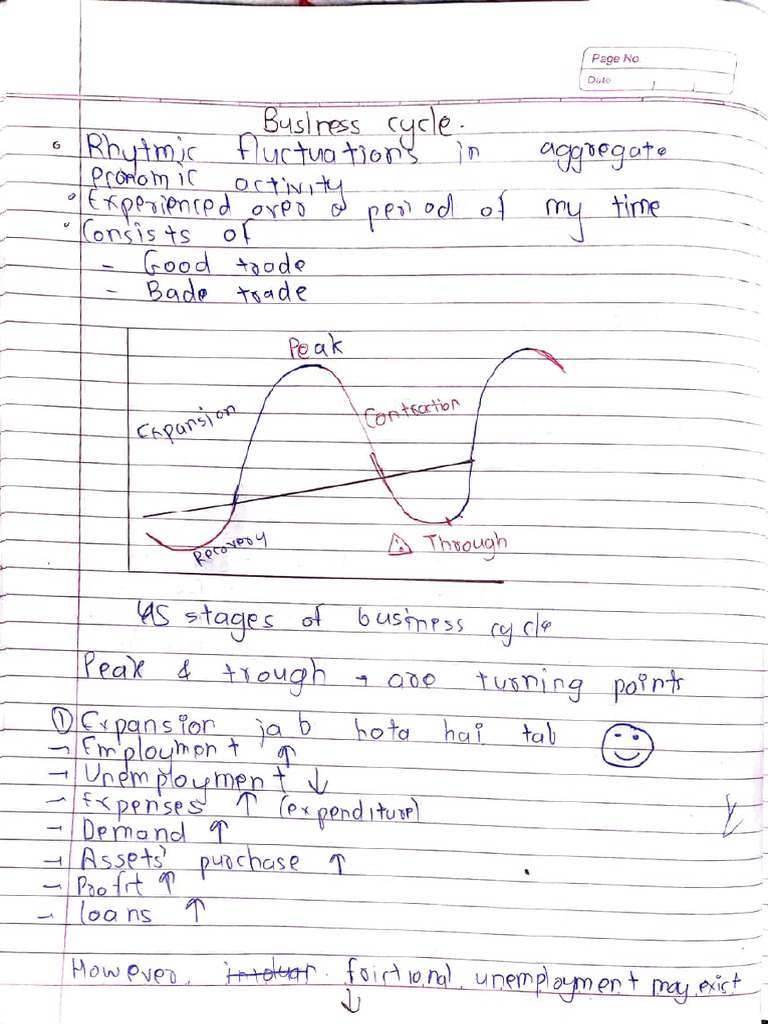 Page No.
Date
Business cycle.
Rhytmic fluctuations in aggregate
economic activity
Experienced over a period of my time
Consists of
- Good trade
- Bade trade
Peak
Expansion
Contraction
Recovery
Through
stages of business cycle
Peak & trough → are turning points
① Expansion jab hota hai tab
→ Employment ↑
→ Unemployment ↓
→ Expenses ↑ (expenditure)
→ Demand ↑
→ Assets' purchase ↑
→ Profit ↑
→ loans ↑
However, frictional unemployment may exist
↓